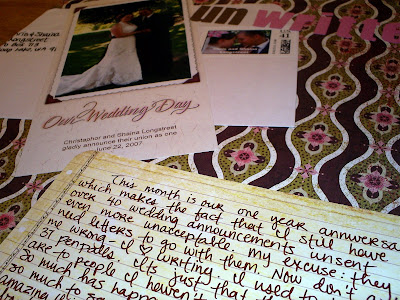 un writte
& Shaina
Longstreet
PO Box 83
41
Our Wedding Day
Christopher and Shaina Longstreet
gladly announce their union as one
June 22, 2007
This month is our one year anniversa
which makes the fact that I still have
over 40 wedding announcements unsent
even more unacceptable. my excuse: they
need letters to go with them. Now don't
me wrong-I ♡ writing. I used to
31 penpals. Its just that
are to people I haven't
so much has happ
so much to
amazing